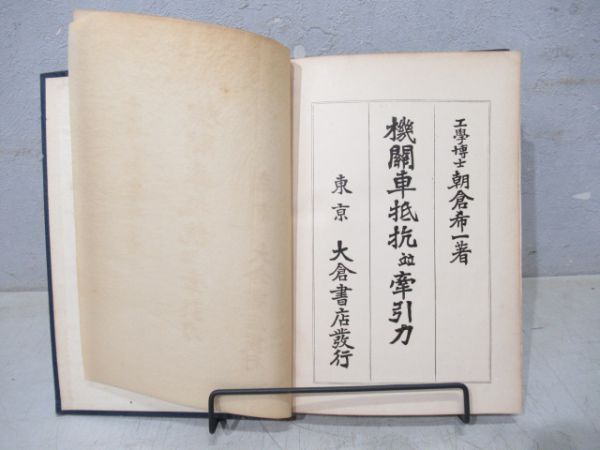 工學博士 朝倉希一著
機關車抵抗並牽引力
東京 大倉書店發行